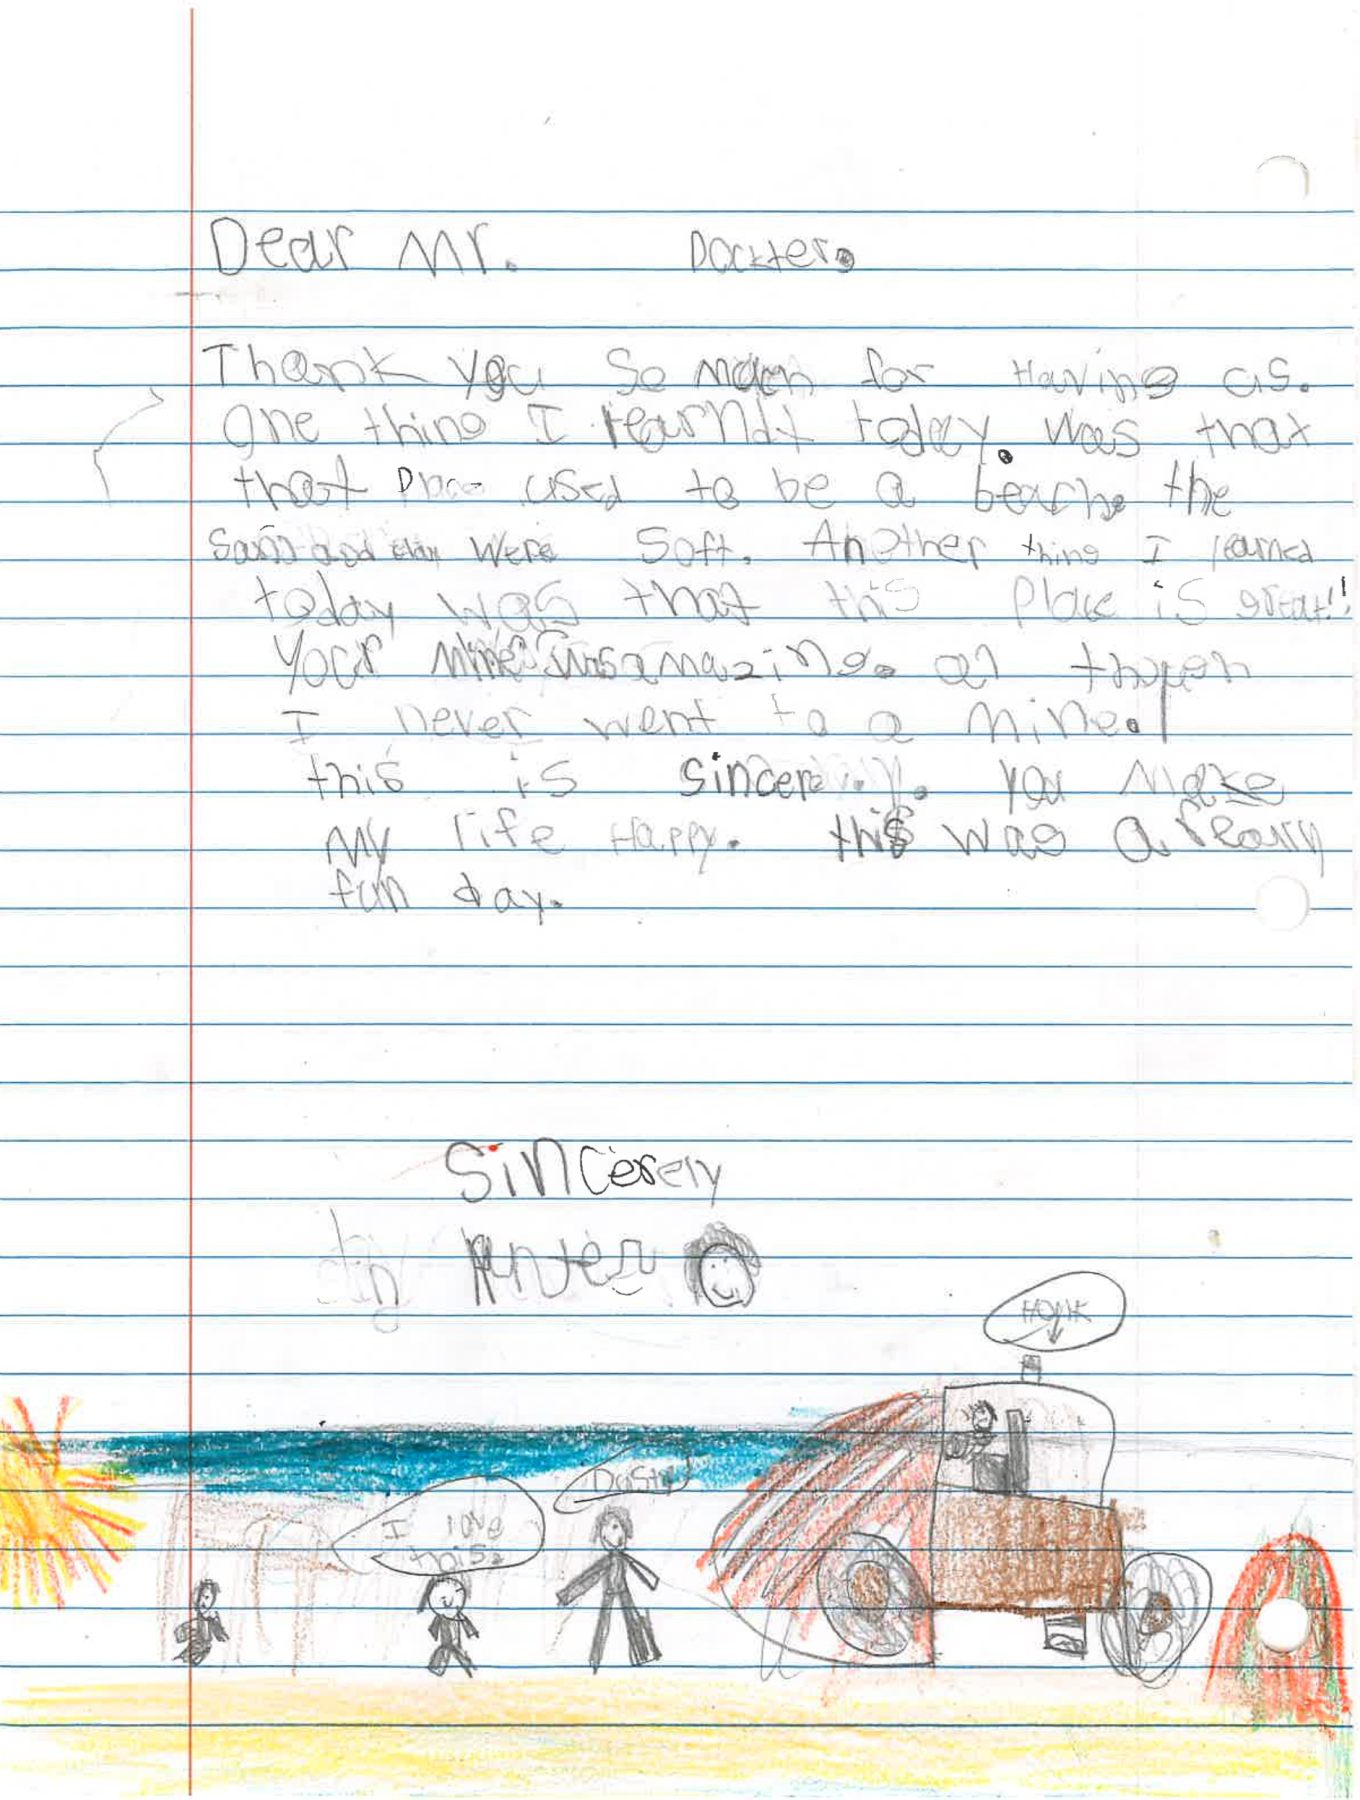 Dear Mr. Dockter.
Thank you so much for Having us.
One thing I learndt today. was that
that place used to be a beach. the
sand and clay were soft. Another thing I learned
today was that this place is great!!
Your mine was amazing.
I never went to a mine.!
this is sincerely. you make
my life Happy. this was a really
fun day.
Sincerely
by
HONK
Dusty
I love
this.